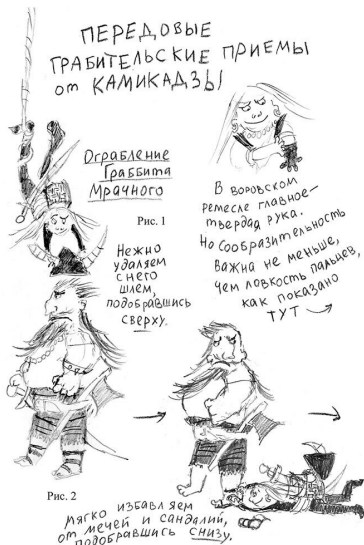 ПЕРЕДОВЫЕ
ГРАБИТЕЛЬСКИЕ ПРИЕМЫ
от КАМИКАДЗЫ
Ограбление
Граббита
Мрачного
Рис. 1
Нежно
удаляем
с него
шлем,
подобравшись
сверху.
В воровском
ремесле главное –
твердая рука.
Но сообразительность
важна не меньше,
чем ловкость пальцев,
как показано
ТУТ
Рис. 2
Мягко избавляем
от мечей и сандалий,
подобравшись снизу.